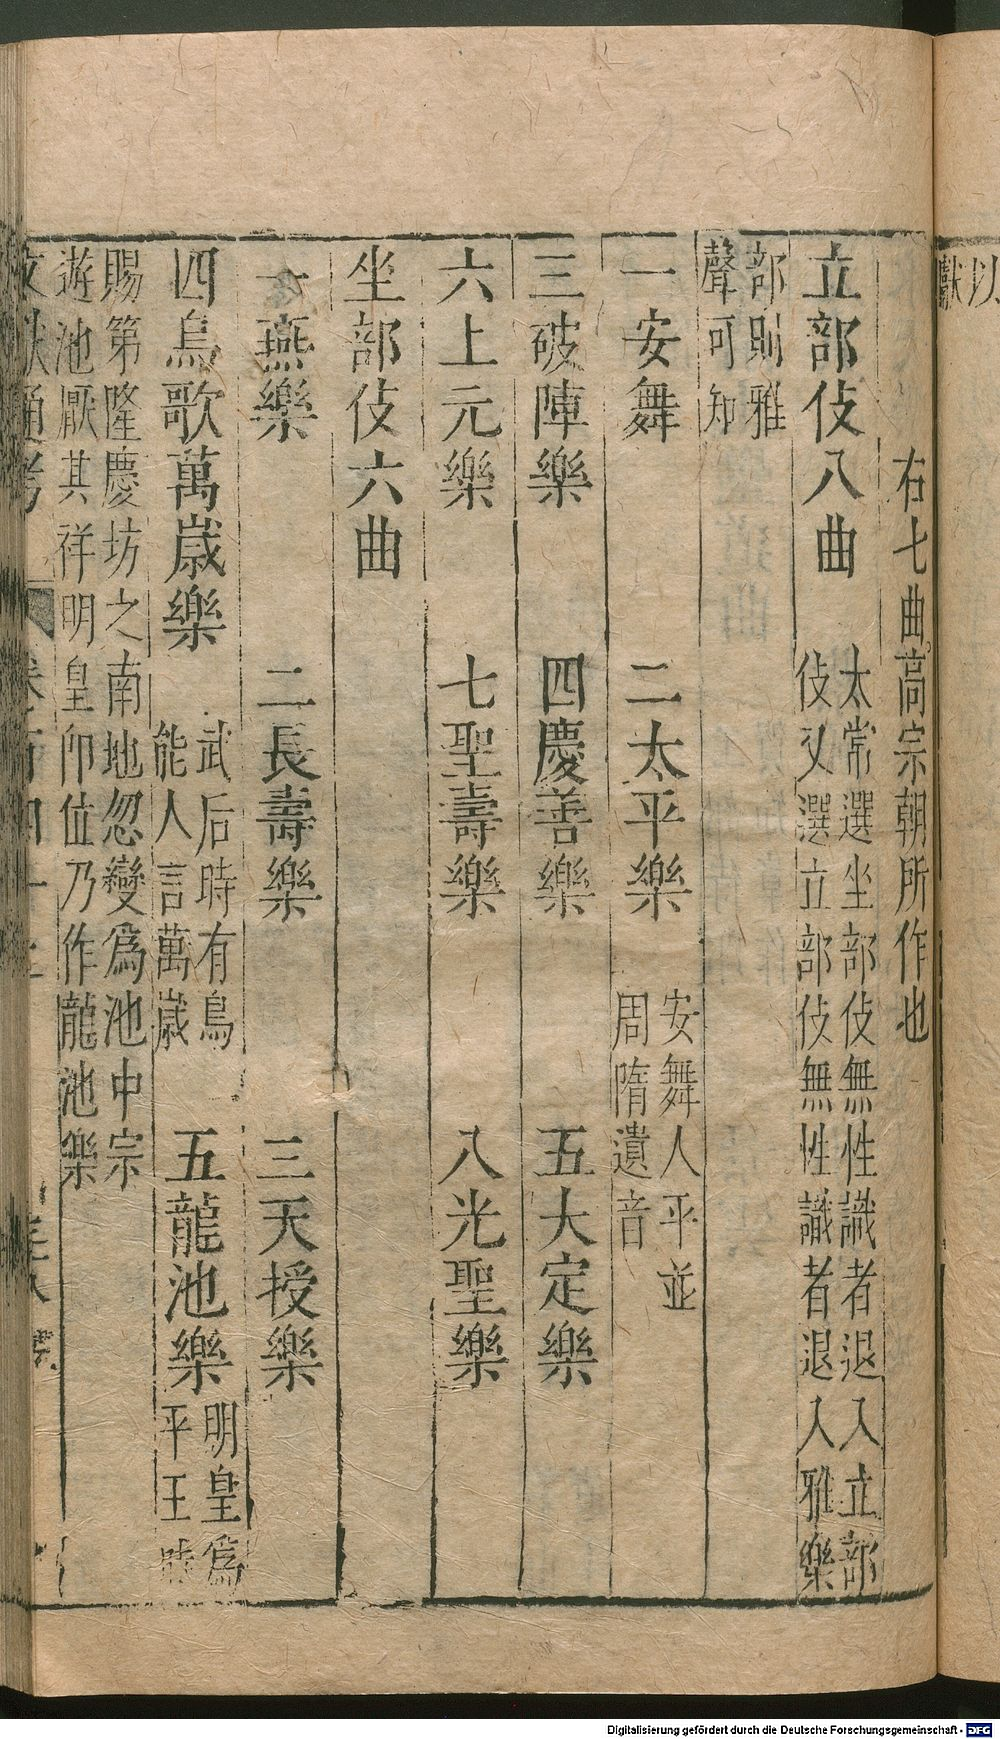 以
獻
右七曲高宗朝所作也
立部伎八曲
太常選坐部伎無性識者退入立部
伎又選立部伎無性識者退入雅樂
部則雅
聲可知
一安舞 二太平樂
安舞人平並
周隋遺音
三破陣樂 四慶善樂 五大定樂
六上元樂 七聖壽樂 八光聖樂
坐部伎六曲
一燕樂 二長壽樂 三天授樂
四鳥歌萬歲樂
武后時有鳥
能人言萬歲
五龍池樂
明皇爲
平王時
賜第隆慶坊之南地忽變爲池中宗
遊池厭其祥明皇卽位乃作龍池樂
文獻通考 卷百四十
Digitalisierung gefördert durch die Deutsche Forschungsgemeinschaft - DFG